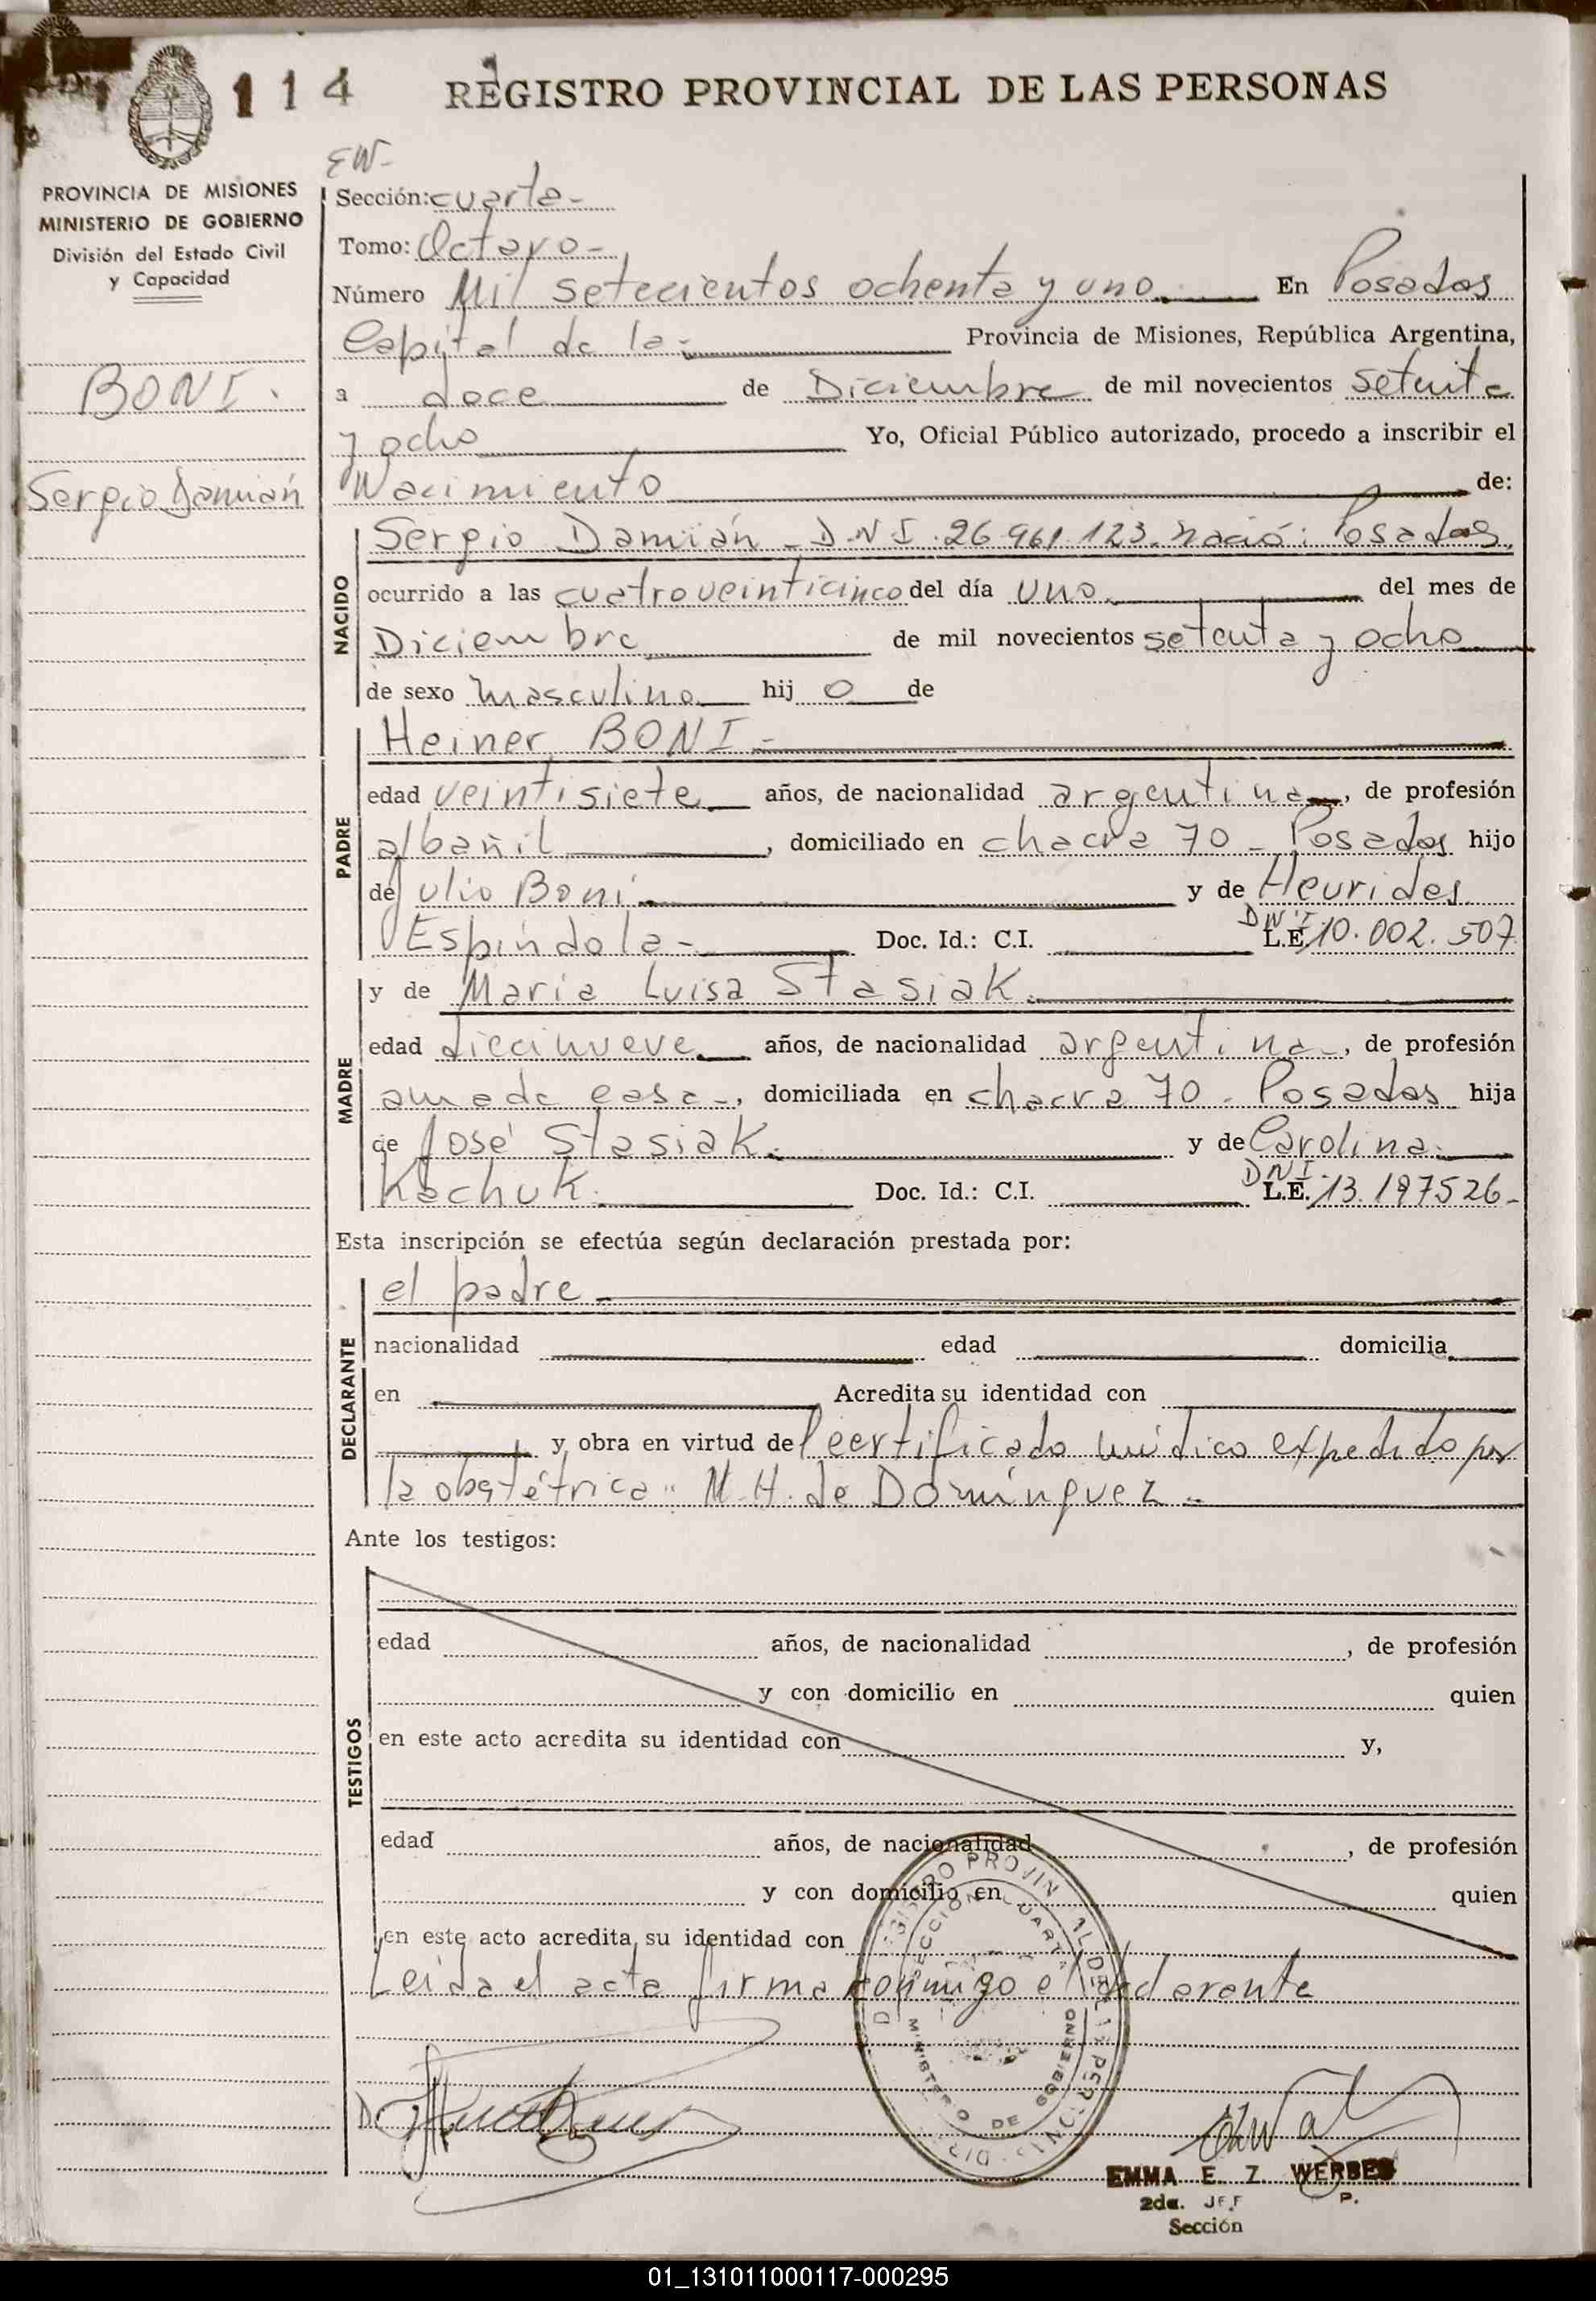 114 REGISTRO PROVINCIAL DE LAS PERSONAS
PROVINCIA DE MISIONES
MINISTERIO DE GOBIERNO
División del Estado Civil
y Capacidad
BONI.
Sergio Damián
EW-
Sección: cuarta-
Tomo: Octavo-
Número Mil setecientos ochenta y uno. En Posadas
Capital de la- Provincia de Misiones, República Argentina,
a doce de Diciembre de mil novecientos setenta
y ocho Yo, Oficial Público autorizado, procedo a inscribir el
Nacimiento de:
NACIDO
Sergio Damián - DNI. 26.961.123. nació: Posadas,
ocurrido a las cuatro veinticinco del día uno. del mes de
Diciembre de mil novecientos setenta y ocho
de sexo masculino hij o de
PADRE
Heiner BONI-
edad veintisiete años, de nacionalidad argentina, de profesión
albañil, domiciliado en chacra 70 - Posadas hijo
de Julio Boni. y de
Espíndola- Doc. Id.: C.I. DNI L.E. 10.002.507
MADRE
y de María Luisa Stasiak.
edad diecinueve años, de nacionalidad argentina-, de profesión
ama de casa-, domiciliada en chacra 70. Posadas hija
de José Stasiak. y de Carolina
Kachuk. Doc. Id.: C.I. DNI L.E. 13.197526-
Esta inscripción se efectúa según declaración prestada por:
DECLARANTE
el padre-
nacionalidad edad domicilia
en Acredita su identidad con
y obra en virtud del certificado médico expedido por
la obstétrica: M.H. de Domínguez-
Ante los testigos:
TESTIGOS
edad años, de nacionalidad , de profesión
y con domicilio en quien
en este acto acredita su identidad con y,
edad años, de nacionalidad , de profesión
y con domicilio en quien
en este acto acredita su identidad con
Leída el acta firma conmigo el
SECCION CUARTA
MINISTERIO DE GOBIERNO
EMMA E. Z. WERBES
2da. JEF P.
Sección
01_131011000117-000295